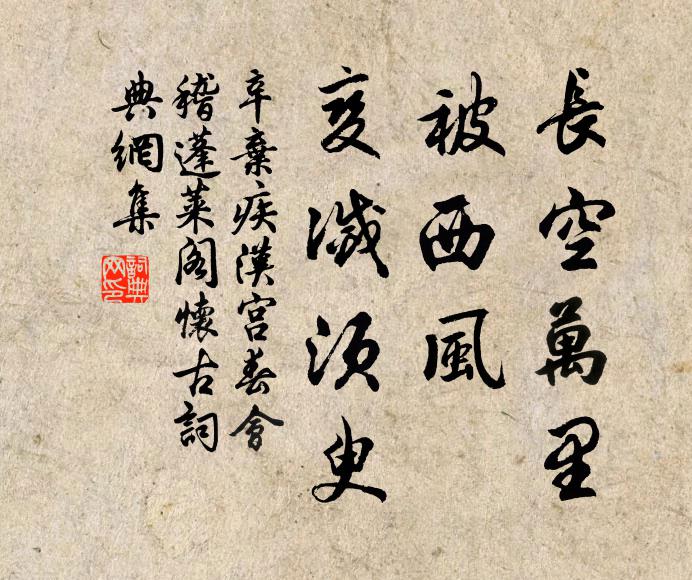 長空萬里
被西風
变滅須臾
辛棄疾漢宮春會
稽蓬萊閣懷古詞
典網集
詞典
网印